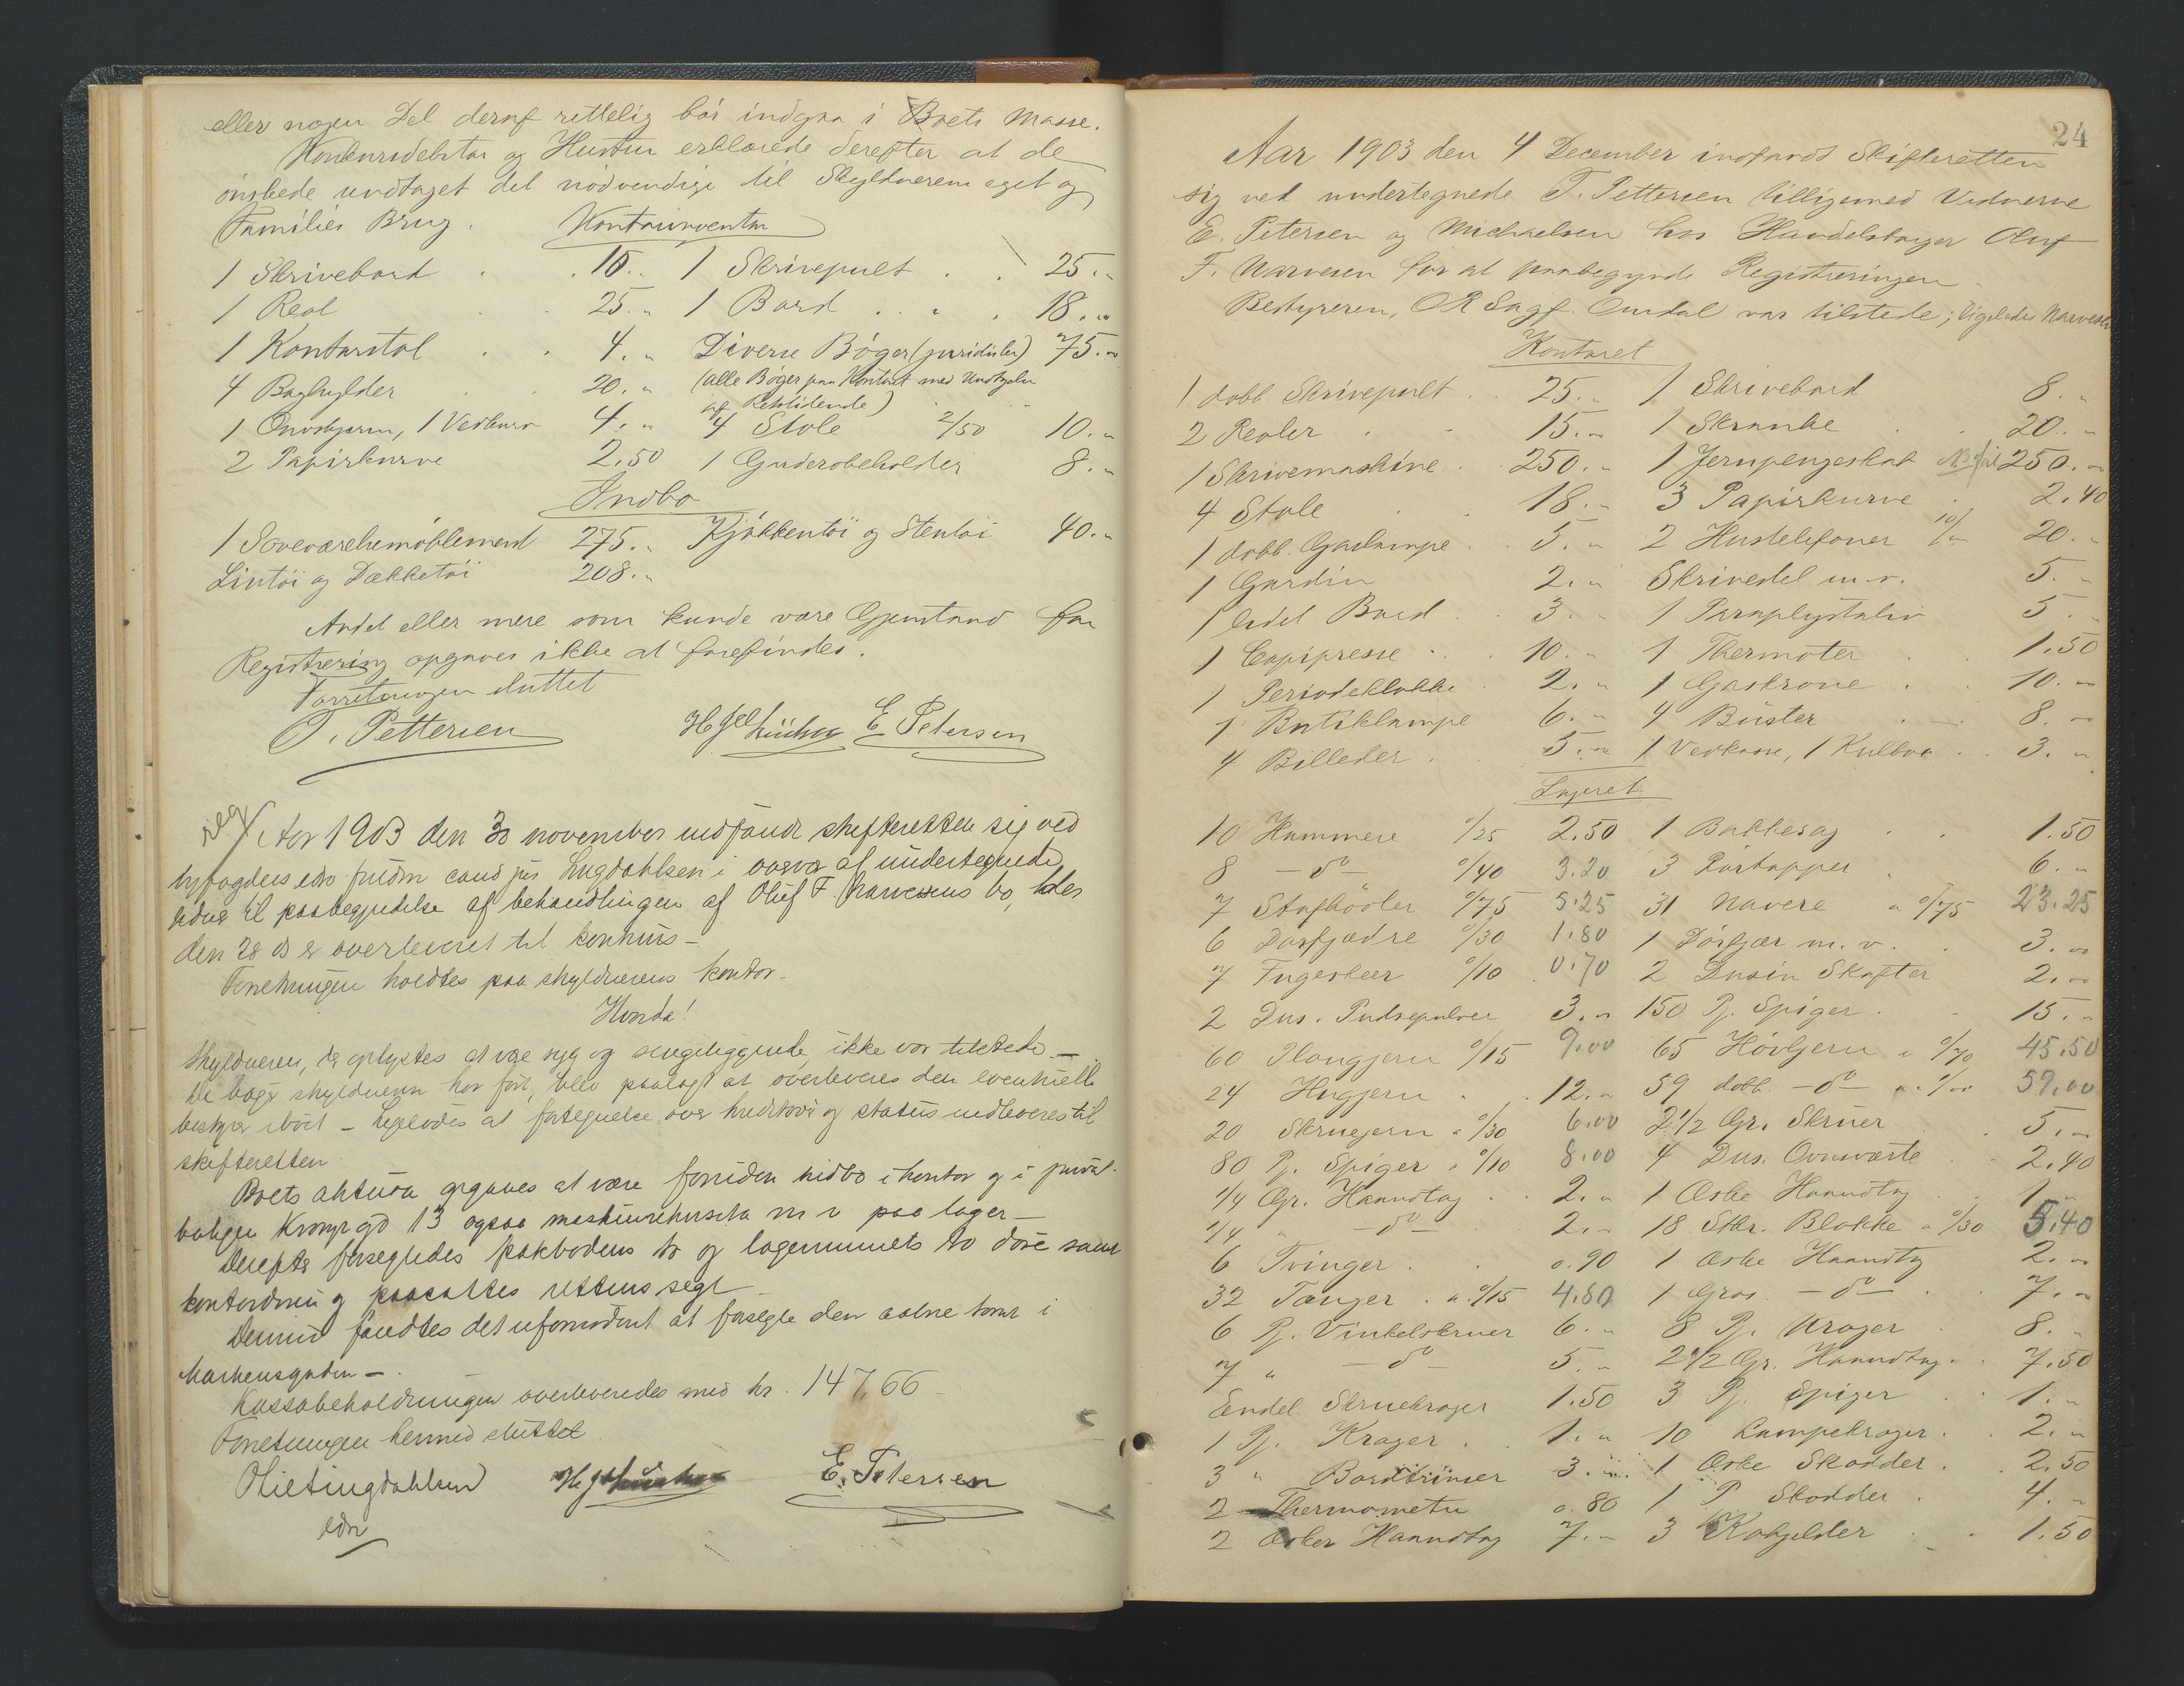 eller nogen Del deraf rettelig bör indgaa i Boets Masse.
Konkursdebitor og Hustru erklærede derefter at de
önskede undtaget det nödvendige til Skyldnerens eget og
Families Brug.
Kontorinventar
1 Skrivebord 15.. 1 Skrivepult 25..
1 Reol 25.. 1 Bord 18..
1 Kontorstol 4.. Diverse Böger (juridiske) 75..
4 Boghylder 20.. (alle Böger paa Kontoret med Undtagelse
af Retstidende)
1 Ovnskjærm, 1 Vedkurv 4.. 4 Stole 2/50 10..
2 Papirkurve 2.50 1 Garderobeholder 8..
Indbo
1 Soveværelsemöblement 275.. Kjökkentöi og Stentöi 40..
Lintöi og Dækketöi 208..
Andet eller mere som kunde være Gjenstand for
Registrering opgaves ikke at forefindes.
Forretningen sluttet
T. Pettersen E Petersen
Aar 1903 den 30 november indfandt skifteretten sig ved
byfogdens edsv. fuldm cand jur Lingdahlsen i overvær af undertegnede
vidner til paabegyndelse af behandlingen af Oluf F Narvesens bo, der
den 28 ds er overleveret til konkurs –
Forretningen holdtes paa skyldnerens kontor –
Hvorda!
Skyldneren, der oplystes at være syg og sengeliggende, ikke var tilstede –
De böger skyldneren har fört, blev paalagt at overleveres den eventuelle
bestyrer i boet – ligeledes at fortegnelse over kreditorer og status indleveres til
skifteretten
Boets aktiva opgaves at være foruden indbo i kontor og i privat-
boligen Krongd 13 ogsaa maskinrekvisita m v paa lager –
Derefter forsegledes pakbodens to og lagerrummets to döre samt
kontordören og paasattes rettens segl
Dermed fandtes det ufornödent at forsegle den aabne tomt i
Markensgaden –
Kassabeholdningen overleveredes med kr. 147,66 –
Forretningen hermed sluttet
E. Petersen
edsv
24
Aar 1903 den 4 December indfandt Skifteretten
sig ved undertegnede T. Pettersen tilligemed Vidnerne
E. Petersen og Michaelsen hos Handelsborger Oluf
F. Narvesen for at paabegynde Registreringen.
Bestyreren, O.R.Sagf. Omdal var tilstede; ligeledes Narvesen
Kontoret
1 dobb. Skrivepult 25.. 1 Skrivebord 8..
2 Reoler 15.. 1 Skranke 20..
1 Skrivemaskine 250.. 1 Jernpengeskab 250..
4 Stole 18.. 3 Papirkurve 2.40
1 dobb. Gaslampe 5.. 2 Hustelefoner 10/ 20..
1 Gardin 2.. Skrivestel m.v. 5..
1 lidet Bord 3.. 1 Paraplystativ 5..
1 Copipresse 10.. 1 Thermoter 1.50
1 Periodeklokke 2.. 1 Gaskrone 10..
1 Butiklampe 6.. 4 Büster 8..
4 Billeder 5.. 1 Vedkasse, 1 Kulbox 3..
Lageret
10 Hammere 0/25 2.50 1 Bakkesag 1.50
8 –do– 0/40 3.20 3 6..
7 Stafhövler 0/75 5.25 31 Navere a 0/75 23.25
6 Dörfjædre 0/30 1.80 1 Dörfjær m.v. 3..
7 Fugeskeer 0/10 0.70 2 Dusin Skafter 2..
2 Dus. Pudsepulver 3.. 150 Pj. Spiger 15..
60 Plougjern 0/15 9.00 65 Hövljern a 0/70 45.50
24 Hugjern 12.. 59 dobb. –do– a 1/00 59.00
20 Skruejern a 0/30 6.00 2 1/2 Gr. Skruer 5..
80 Pj. Spiger a 0/10 8.00 4 Dus. Ovnsværte 2.40
1/4 Gr. Haandtag 2.. 1 Æske Haandtag 1..
1/4 " –do– 2.. 18 Stkr. Blokke a 0/30 5.40
6 Tvinger 0.90 1 Æske Haandtag 2..
32 Tænger a 0/15 4.80 1 Gros –do– 7..
6 Pj. Vinkelskruer 6.. 8 Pj. Krager 8..
7 " –do– 5.. 2 1/2 Gr. Haandtag 7.50
Endel Skruekrager 1.50 3 Pj. Spiger 1..
1 Pj. Krager 1.. 10 Lampekroger 2..
3 " 3.. 1 Æske Skodder 2.50
2 Thermometre 0.80 1 P Skodder 4..
2 Æsker Haandtag 7.. 3 1.50